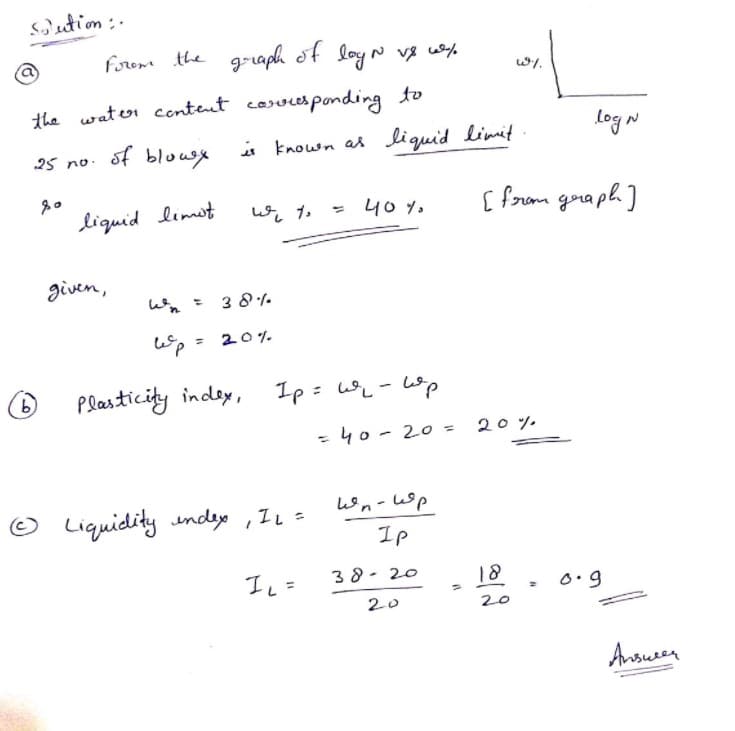 Solution :-
(a) From the graph of log N vs w%
w%
the water content corresponding to
log N
25 no. of blows is known as liquid limit.
so
liquid limit w_L % = 40 % [from graph]
given,
w_n = 38%
w_p = 20%
(b) Plasticity index, I_p = w_L - w_p
= 40 - 20 = 20 %
(c) Liquidity index, I_L = (w_n - w_p) / I_p
I_L = (38 - 20) / 20 = 18 / 20 = 0.9
Answer